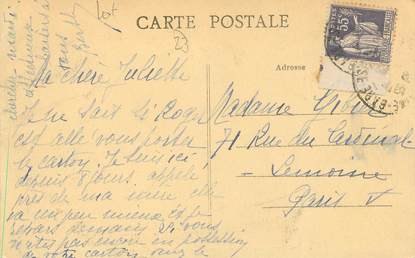 Lot
CARTE POSTALE
23
Adresse
55c
Ma chère Juliette
Je ne sait si Roger
est allé vous porter
le carton. Je suis ici
depuis 8 jours, appelé
près de ma mère, elle
va un peu mieux et je
repars demain. Si vous
n'êtes pas encore en possession
de votre carton
Madame
71 Rue du Cardinal
Lemoine
Paris V